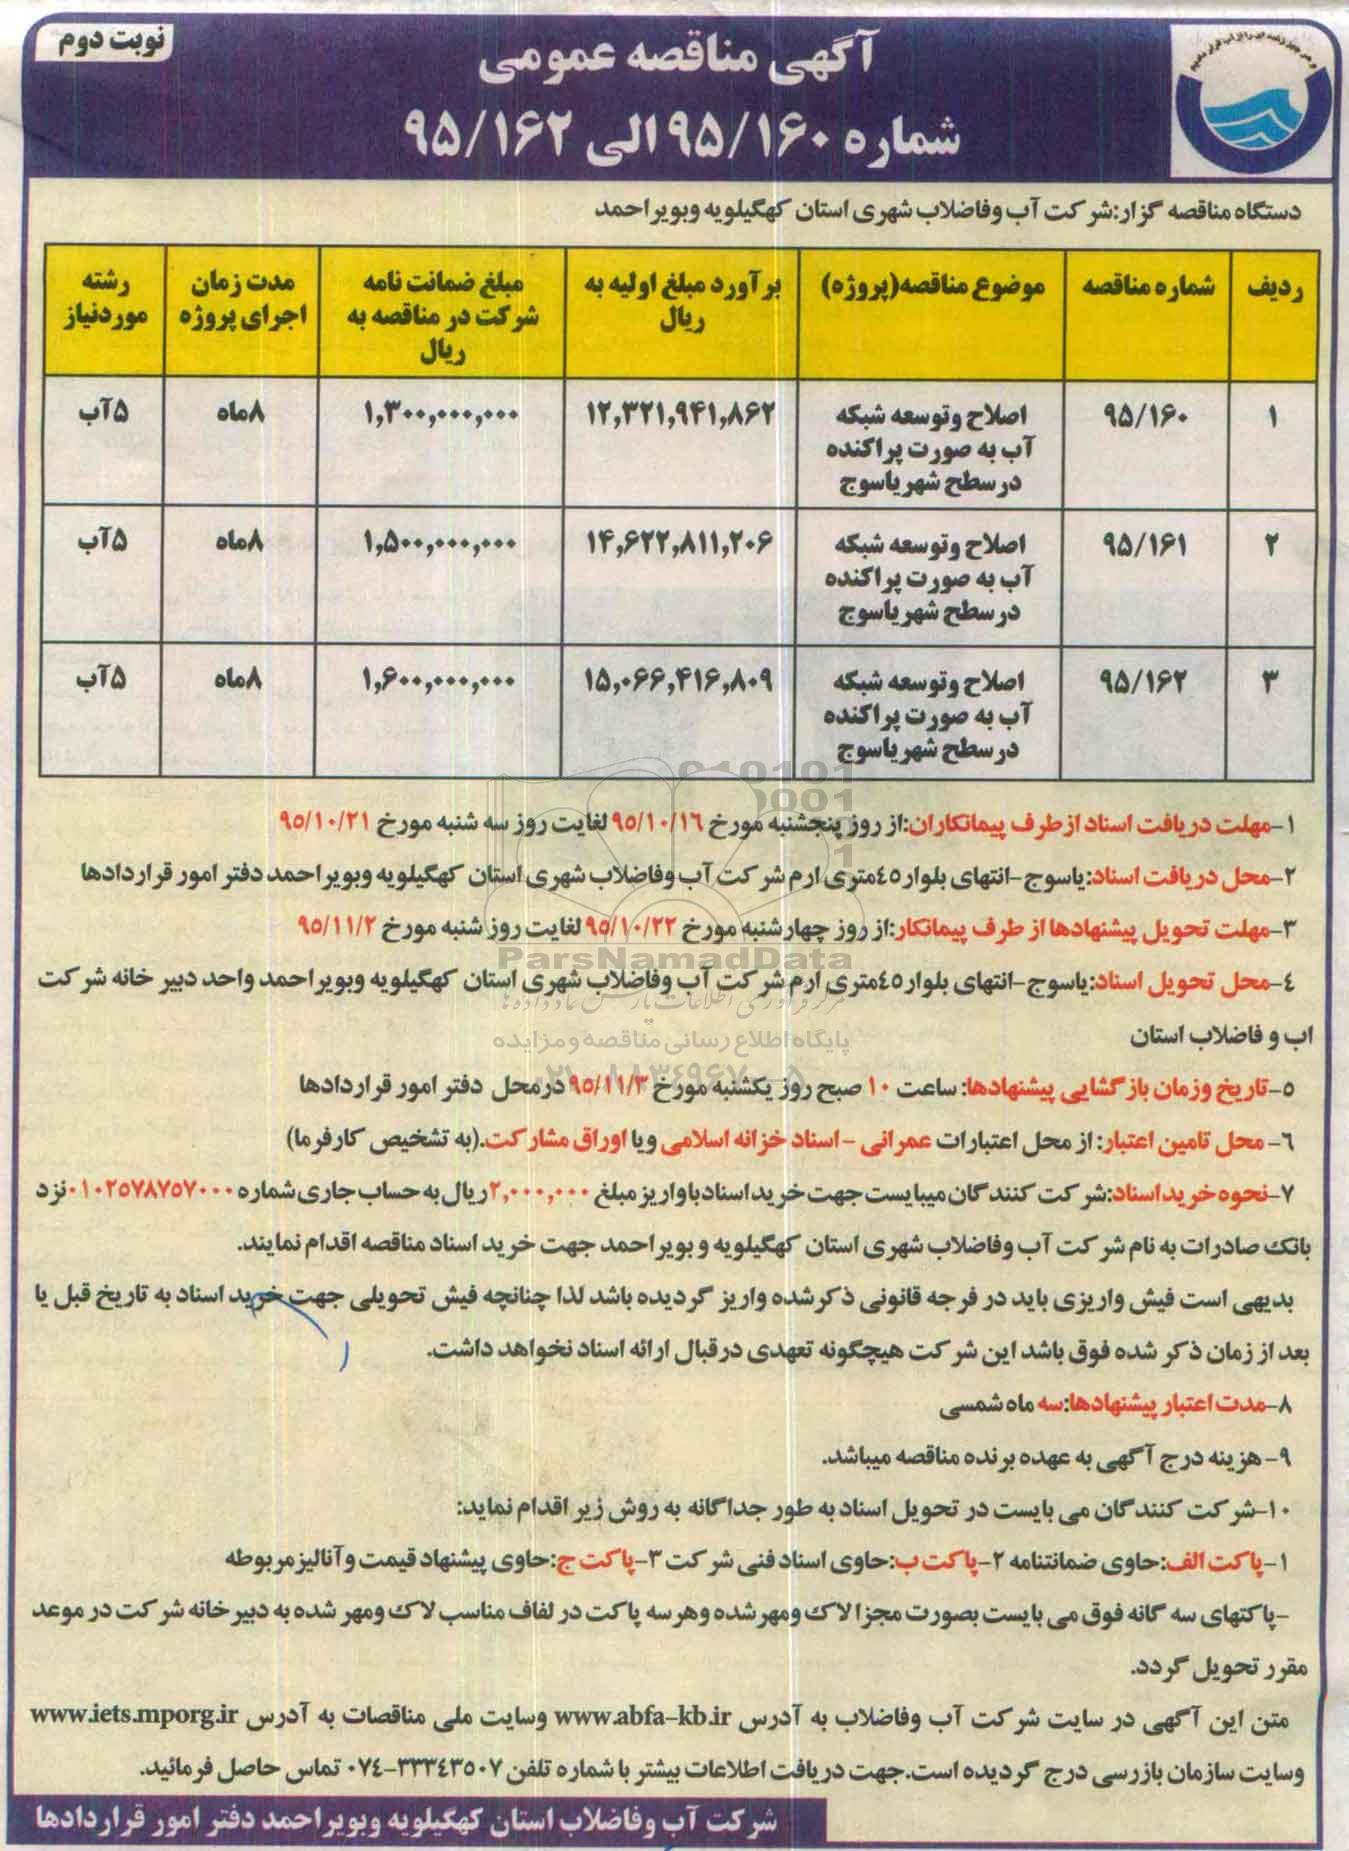 نوبت دوم
آگهی مناقصه عمومی
شماره ۹۵/۱۶۰ الی ۹۵/۱۶۲
دستگاه مناقصه گزار:شرکت آب وفاضلاب شهری استان کهگیلویه وبویراحمد
ردیف شماره مناقصه موضوع مناقصه(پروژه) برآورد مبلغ اولیه به ریال مبلغ ضمانت نامه شرکت در مناقصه به ریال مدت زمان اجرای پروژه رشته موردنیاز
۱ ۹۵/۱۶۰ اصلاح وتوسعه شبکه آب به صورت پراکنده درسطح شهریاسوج ۱۲,۳۲۱,۹۴۱,۸۶۲ ۱,۳۰۰,۰۰۰,۰۰۰ ۸ماه ۵آب
۲ ۹۵/۱۶۱ اصلاح وتوسعه شبکه آب به صورت پراکنده درسطح شهریاسوج ۱۴,۶۲۲,۸۱۱,۲۰۶ ۱,۵۰۰,۰۰۰,۰۰۰ ۸ماه ۵آب
۳ ۹۵/۱۶۲ اصلاح وتوسعه شبکه آب به صورت پراکنده درسطح شهریاسوج ۱۵,۰۶۶,۴۱۶,۸۰۹ ۱,۶۰۰,۰۰۰,۰۰۰ ۸ماه ۵آب
۱-مهلت دریافت اسناد ازطرف پیمانکاران:از روز پنجشنبه مورخ ۹۵/۱۰/۱۶ لغایت روز سه شنبه مورخ ۹۵/۱۰/۲۱
۲-محل دریافت اسناد:یاسوج-انتهای بلوار۴۵متری ارم شرکت آب وفاضلاب شهری استان کهگیلویه وبویراحمد دفتر امور قراردادها
۳-مهلت تحویل پیشنهادها از طرف پیمانکار:از روز چهارشنبه مورخ ۹۵/۱۰/۲۲ لغایت روز شنبه مورخ ۹۵/۱۱/۲
ParsNamadData
۴-محل تحویل اسناد:یاسوج-انتهای بلوار۴۵متری ارم شرکت آب وفاضلاب شهری استان کهگیلویه وبویراحمد واحد دبیر خانه شرکت
اب و فاضلاب استان
پایگاه اطلاع رسانی مناقصه و مزایده
۵-تاریخ وزمان بازگشایی پیشنهادها: ساعت ۱۰ صبح روز یکشنبه مورخ ۹۵/۱۱/۳ درمحل دفتر امور قراردادها
۶- محل تامین اعتبار: از محل اعتبارات عمرانی - اسناد خزانه اسلامی ویا اوراق مشارکت.(به تشخیص کارفرما)
۷-نحوه خرید اسناد:شرکت کنندگان میبایست جهت خرید اسناد باواریز مبلغ ۲,۰۰۰,۰۰۰ریال به حساب جاری شماره ۰۱۰۲۵۷۸۷۵۷۰۰۰نزد
بانک صادرات به نام شرکت آب وفاضلاب شهری استان کهگیلویه و بویراحمد جهت خرید اسناد مناقصه اقدام نمایند.
بدیهی است فیش واریزی باید در فرجه قانونی ذکرشده واریز گردیده باشد لذا چنانچه فیش تحویلی جهت خرید اسناد به تاریخ قبل یا
بعد از زمان ذکر شده فوق باشد این شرکت هیچگونه تعهدی درقبال ارائه اسناد نخواهد داشت.
۸-مدت اعتبار پیشنهادها:سه ماه شمسی
۹- هزینه درج آگهی به عهده برنده مناقصه میباشد.
۱۰-شرکت کنندگان می بایست در تحویل اسناد به طور جداگانه به روش زیر اقدام نماید:
۱-پاکت الف:حاوی ضمانتنامه ۲-پاکت ب:حاوی اسناد فنی شرکت ۳-پاکت ج:حاوی پیشنهاد قیمت وآنالیزمربوطه
-پاکتهای سه گانه فوق می بایست بصورت مجزا لاک ومهرشده وهرسه پاکت در لفاف مناسب لاک ومهر شده به دبیرخانه شرکت در موعد
مقرر تحویل گردد.
متن این آگهی در سایت شرکت آب وفاضلاب به آدرس www.abfa-kb.ir وسایت ملی مناقصات به آدرس www.iets.mporg.ir
وسایت سازمان بازرسی درج گردیده است.جهت دریافت اطلاعات بیشتر با شماره تلفن ۰۷۴-۳۳۳۴۳۵۰۷ تماس حاصل فرمائید.
شرکت آب وفاضلاب استان کهگیلویه وبویراحمد دفتر امور قراردادها